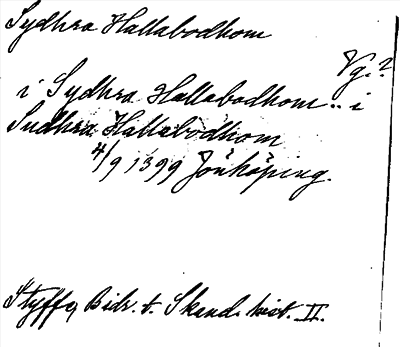 Sydhra Hallabodhom
Vg.?
i Sydhra Hallabodhom .. i
Sudhra Hallabodhom
4/9 1399 Jönköping.
Styffe, Bidr. t. Skand. hist. II.